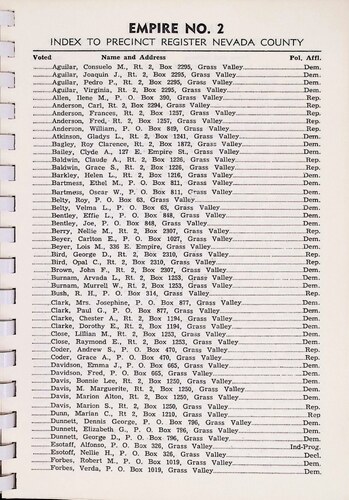 EMPIRE NO. 2
INDEX TO PRECINCT REGISTER NEVADA COUNTY
Voted Name and Address Pol. Affl.
Aguilar, Consuelo M., Rt. 2, Box 2295, Grass Valley Dem.
Aguilar, Joaquin J., Rt. 2, Box 2295, Grass Valley Dem.
Aguilar, Pedro P., Rt. 2, Box 2295, Grass Valley Dem.
Aguilar, Virginia, Rt. 2, Box 2295, Grass Valley Dem.
Allen, Ilene M., P. O. Box 390, Grass Valley Rep.
Anderson, Carl, Rt. 2, Box 2294, Grass Valley Rep.
Anderson, Frances, Rt. 2, Box 1257, Grass Valley Rep.
Anderson, Fred, Rt. 2, Box 1257, Grass Valley Rep.
Anderson, William, P. O. Box 849, Grass Valley Rep.
Atkinson, Gladys L., Rt. 2, Box 1241, Grass Valley Dem.
Bagley, Roy Clarence, Rt. 2, Box 1872, Grass Valley Dem.
Bailey, Clyde A., 127 E. Empire St., Grass Valley Dem.
Baldwin, Claude A., Rt. 2, Box 1226, Grass Valley Rep.
Baldwin, Grace S., Rt. 2, Box 1226, Grass Valley Rep.
Barkley, Helen L., Rt. 2, Box 1216, Grass Valley Dem.
Bartmess, Ethel M., P. O. Box 811, Grass Valley Dem.
Bartmess, Oscar W., P. O. Box 811, Grass Valley Dem.
Belty, Roy, P. O. Box 63, Grass Valley Dem.
Belty, Velma L., P. O. Box 63, Grass Valley Dem.
Bentley, Effie L., P. O. Box 848, Grass Valley Dem.
Bentley, Joe, P. O. Box 848, Grass Valley Dem.
Berry, Nellie M., Rt. 2, Box 2307, Grass Valley Rep.
Beyer, Carlton E., P. O. Box 1027, Grass Valley Dem.
Beyer, Lois M., 336 E. Empire, Grass Valley Dem.
Bird, George D., Rt. 2, Box 2310, Grass Valley Rep.
Bird, Opal C., Rt. 2, Box 2310, Grass Valley Rep.
Brown, John F., Rt. 2, Box 2307, Grass Valley Dem.
Burnam, Arvada L., Rt. 2, Box 1253, Grass Valley Dem.
Burnam, Murrell W., Rt. 2, Box 1253, Grass Valley Dem.
Bush, R. H., P. O. Box 314, Grass Valley Rep.
Clark, Mrs. Josephine, P. O. Box 877, Grass Valley Dem.
Clark, Paul G., P. O. Box 877, Grass Valley Dem.
Clarke, Chester A., Rt. 2, Box 1194, Grass Valley Dem.
Clarke, Dorothy E., Rt. 2, Box 1194, Grass Valley Dem.
Close, Lillian M., Rt. 2, Box 1253, Grass Valley Dem.
Close, Raymond E., Rt. 2, Box 1253, Grass Valley Dem.
Coder, Andrew S., P. O. Box 470, Grass Valley Rep.
Coder, Grace A., P. O. Box 470, Grass Valley Rep.
Davidson, Emma J., P. O. Box 665, Grass Valley Dem.
Davidson, Fred, P. O. Box 665, Grass Valley Dem.
Davis, Bonnie Lee, Rt. 2, Box 1250, Grass Valley Dem.
Davis, M. Marguerite, Rt. 2, Box 1250, Grass Valley Dem.
Davis, Marion Alton, Rt. 2, Box 1250, Grass Valley Dem.
Davis, Marion S., Rt. 2, Box 1250, Grass Valley Rep.
Dunn, Marian C., Rt. 2, Box 1210, Grass Valley Rep
Dunnett, Dennis George, P. O. Box 796, Grass Valley Dem.
Dunnett, Elizabeth G., P. O. Box 796, Grass Valley Dem.
Dunnett, George D., P. O. Box 796, Grass Valley Dem.
Esotaff, Alfonso, P. O. Box 326, Grass Valley Ind-Prog.
Esotoff, Nellie H., P. O. Box 326, Grass Valley Decl.
Forbes, Robert M., P. O. Box 1019, Grass Valley Dem.
Forbes, Verda, P. O. Box 1019, Grass Valley Dem.